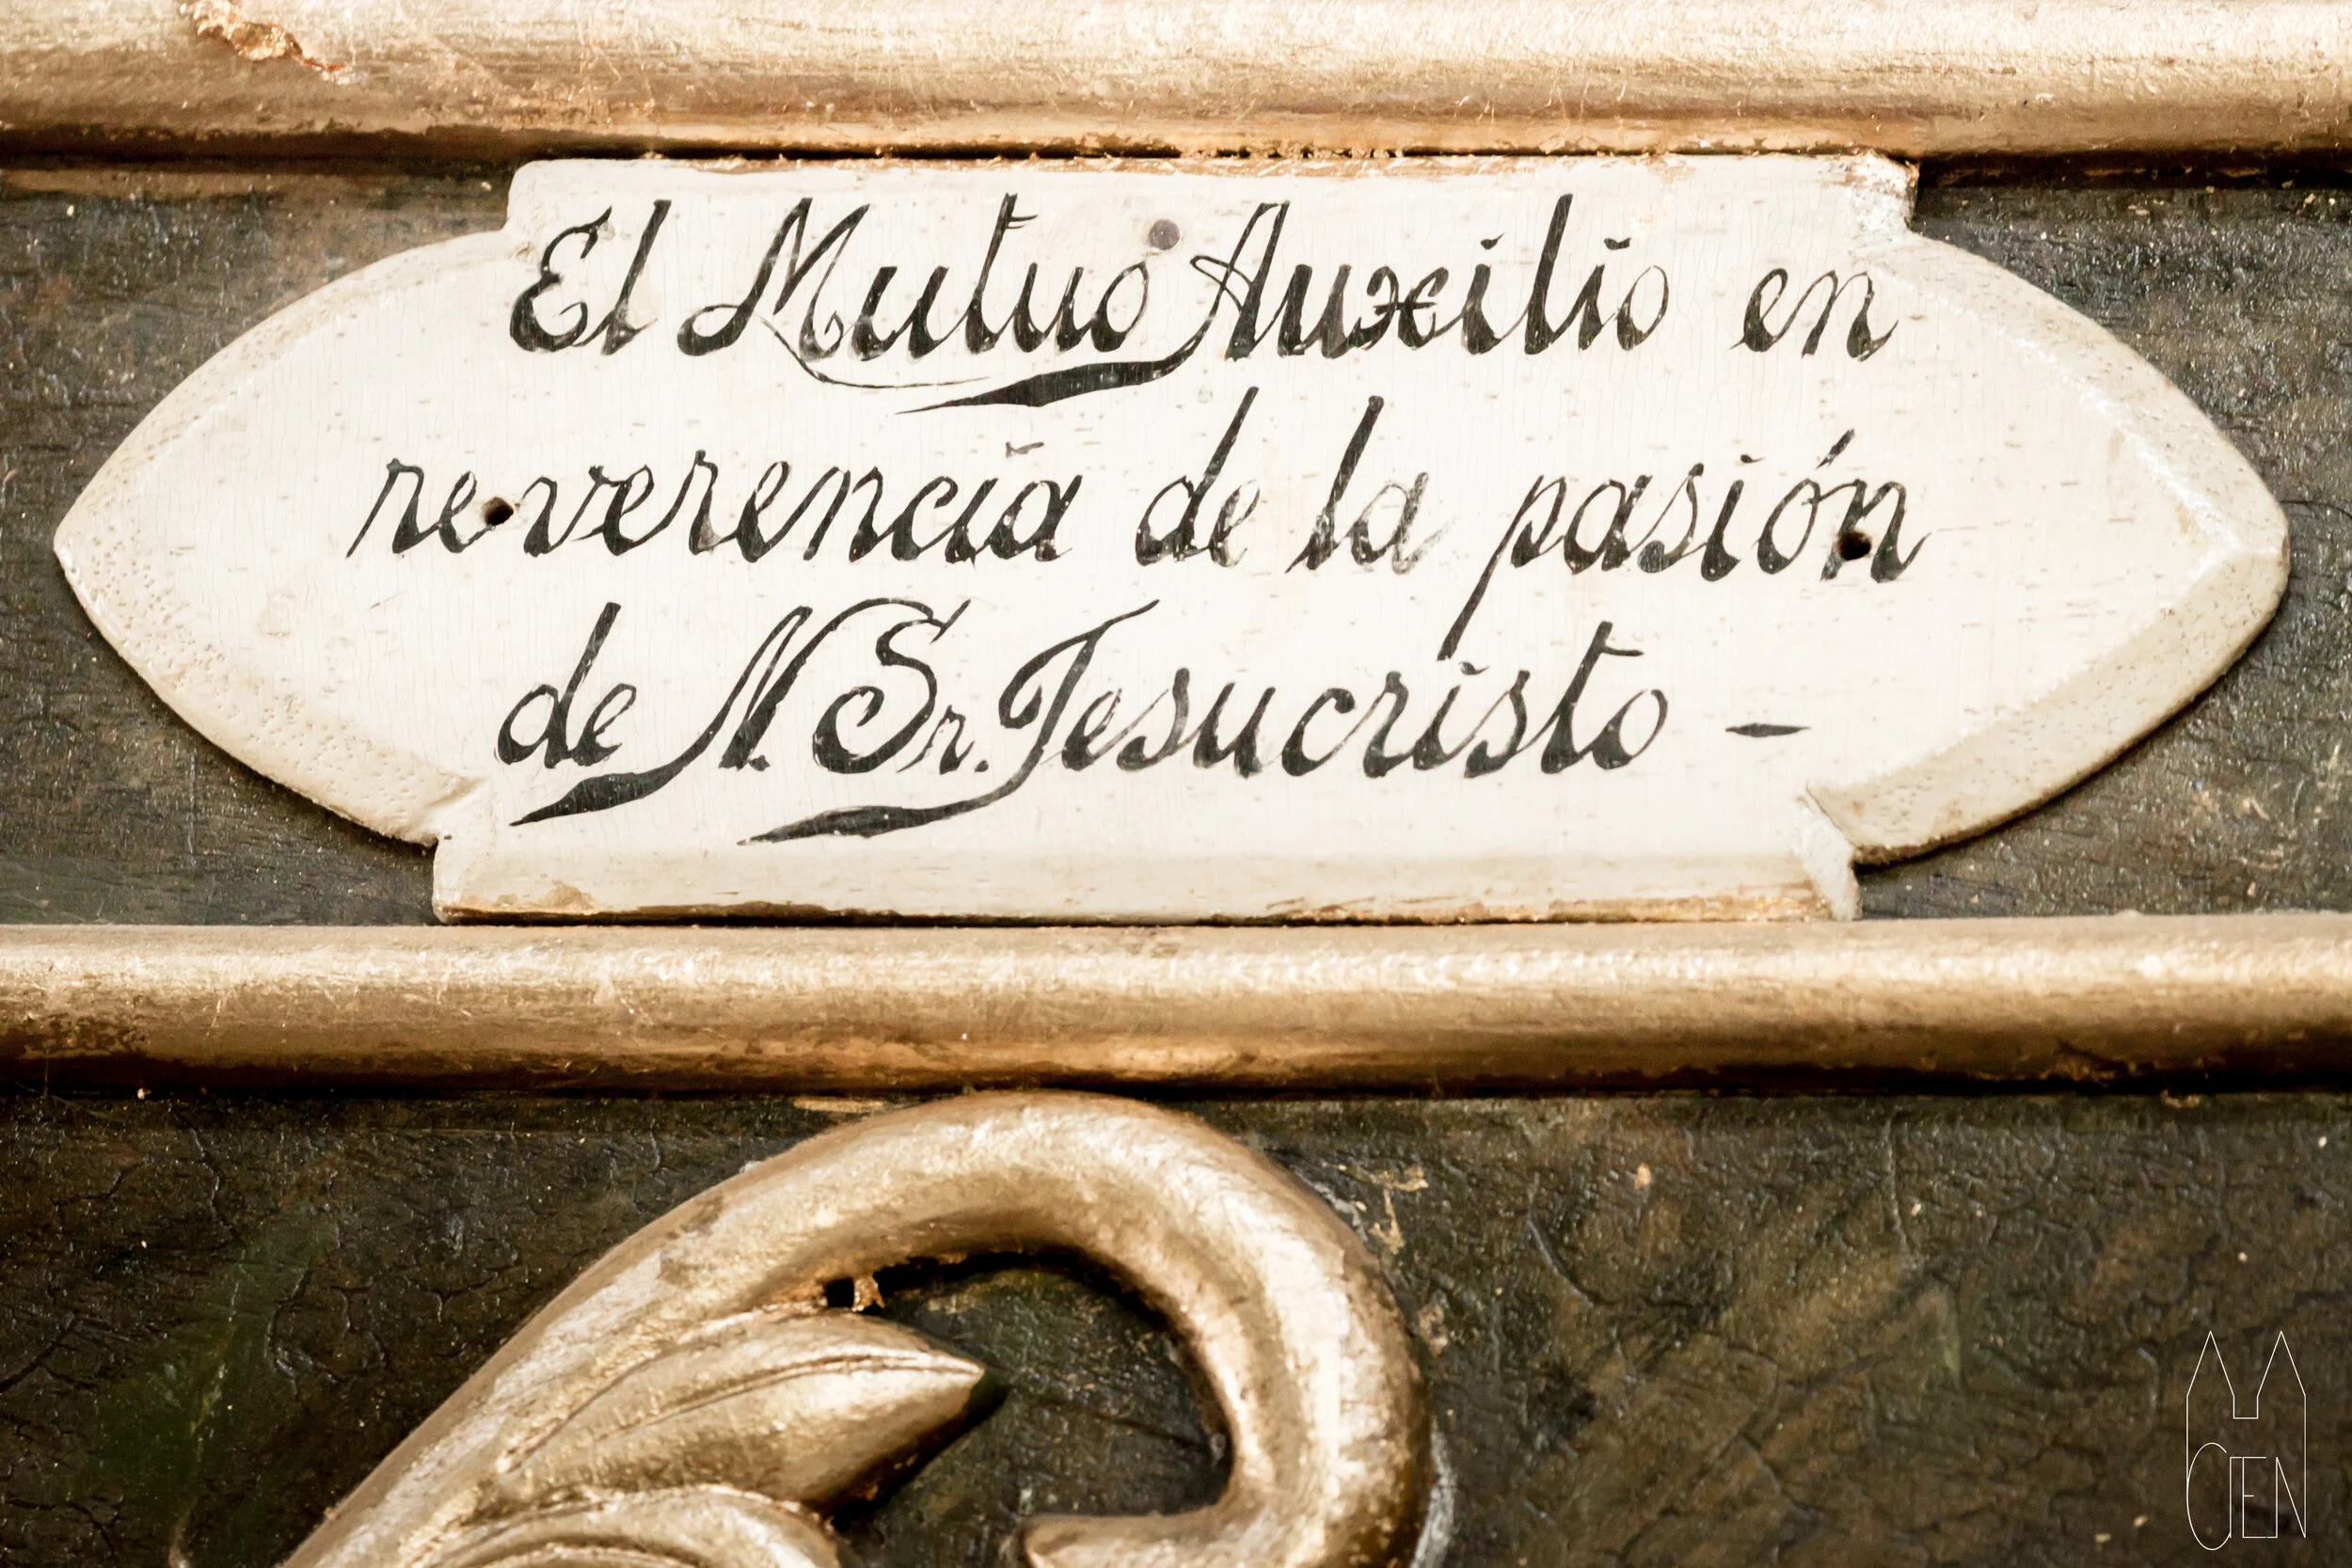 El Mutuo Auxilio en
reverencia de la pasión
de N. Sr. Jesucristo -
CIEN